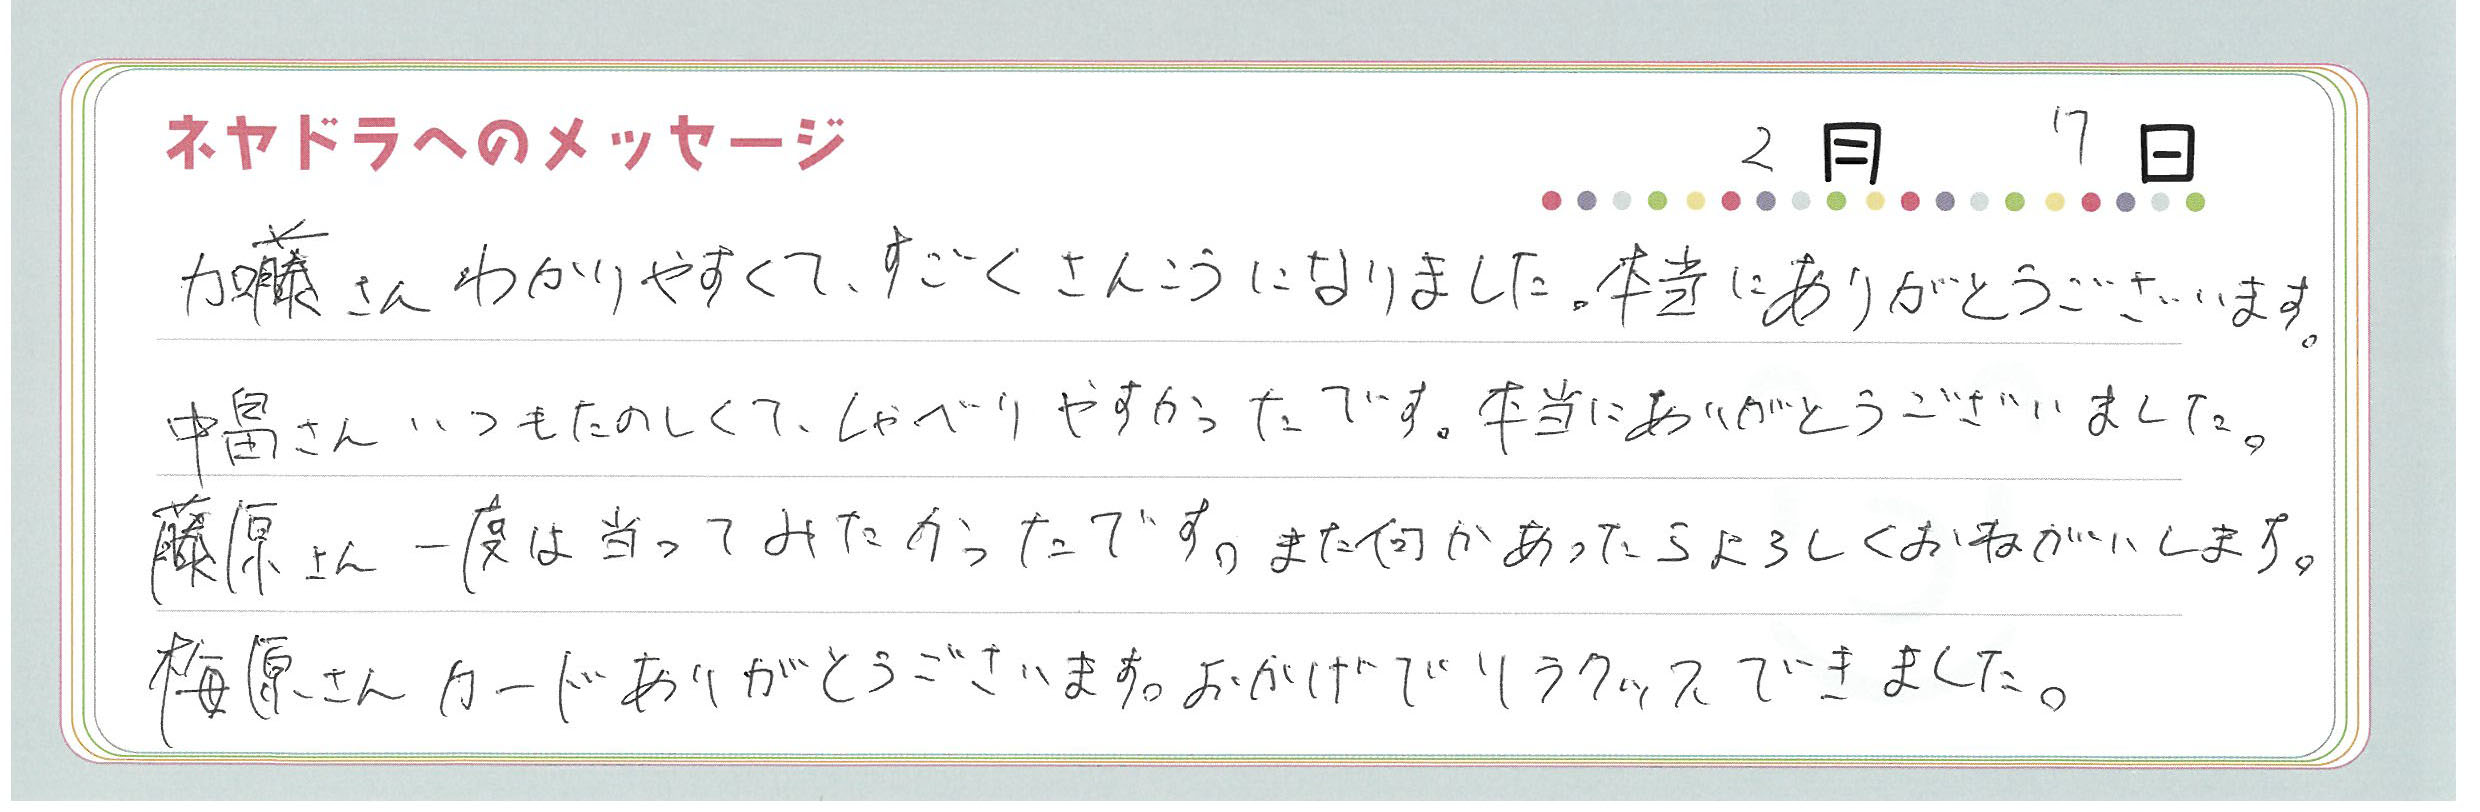 ネヤドラへのメッセージ
2月 17日
加藤さんわかりやすくて、すごくさんこうになりました。本当にありがとうございます。
中畠さんいつもたのしくて、しゃべりやすかったです。本当にありがとうございました。
藤原さん一度は当ってみたかったです。また何かあったらよろしくおねがいします。
梅原さんカードありがとうございます。おかげでリラクッスできました。